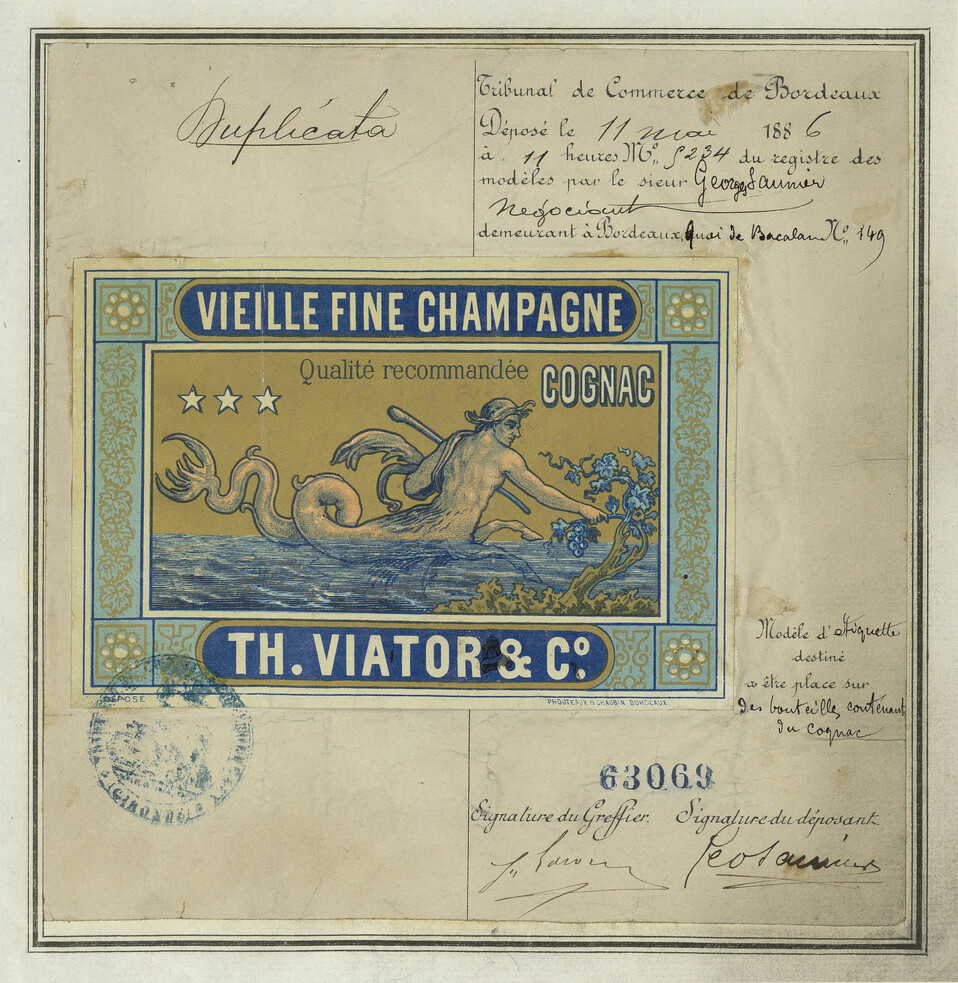 Duplicata
Tribunal de Commerce de Bordeaux
Déposé le 11 mai 1886
à 11 heures No. 5234 du registre des
modèles par le sieur Georges Saunier
Négociant
demeurant à Bordeaux, Quai de Bacalan No. 149
VIEILLE FINE CHAMPAGNE
Qualité recommandée
COGNAC
TH. VIATOR & Co.
DÉPOSÉ
PROUTEAUX & CHAUBIN BORDEAUX.
Modèle d'étiquette
destiné
a être place sur
des bouteilles contenant
du cognac
63069
Signature du Greffier. Signature du déposant
Geo Saunier
GIRONDE